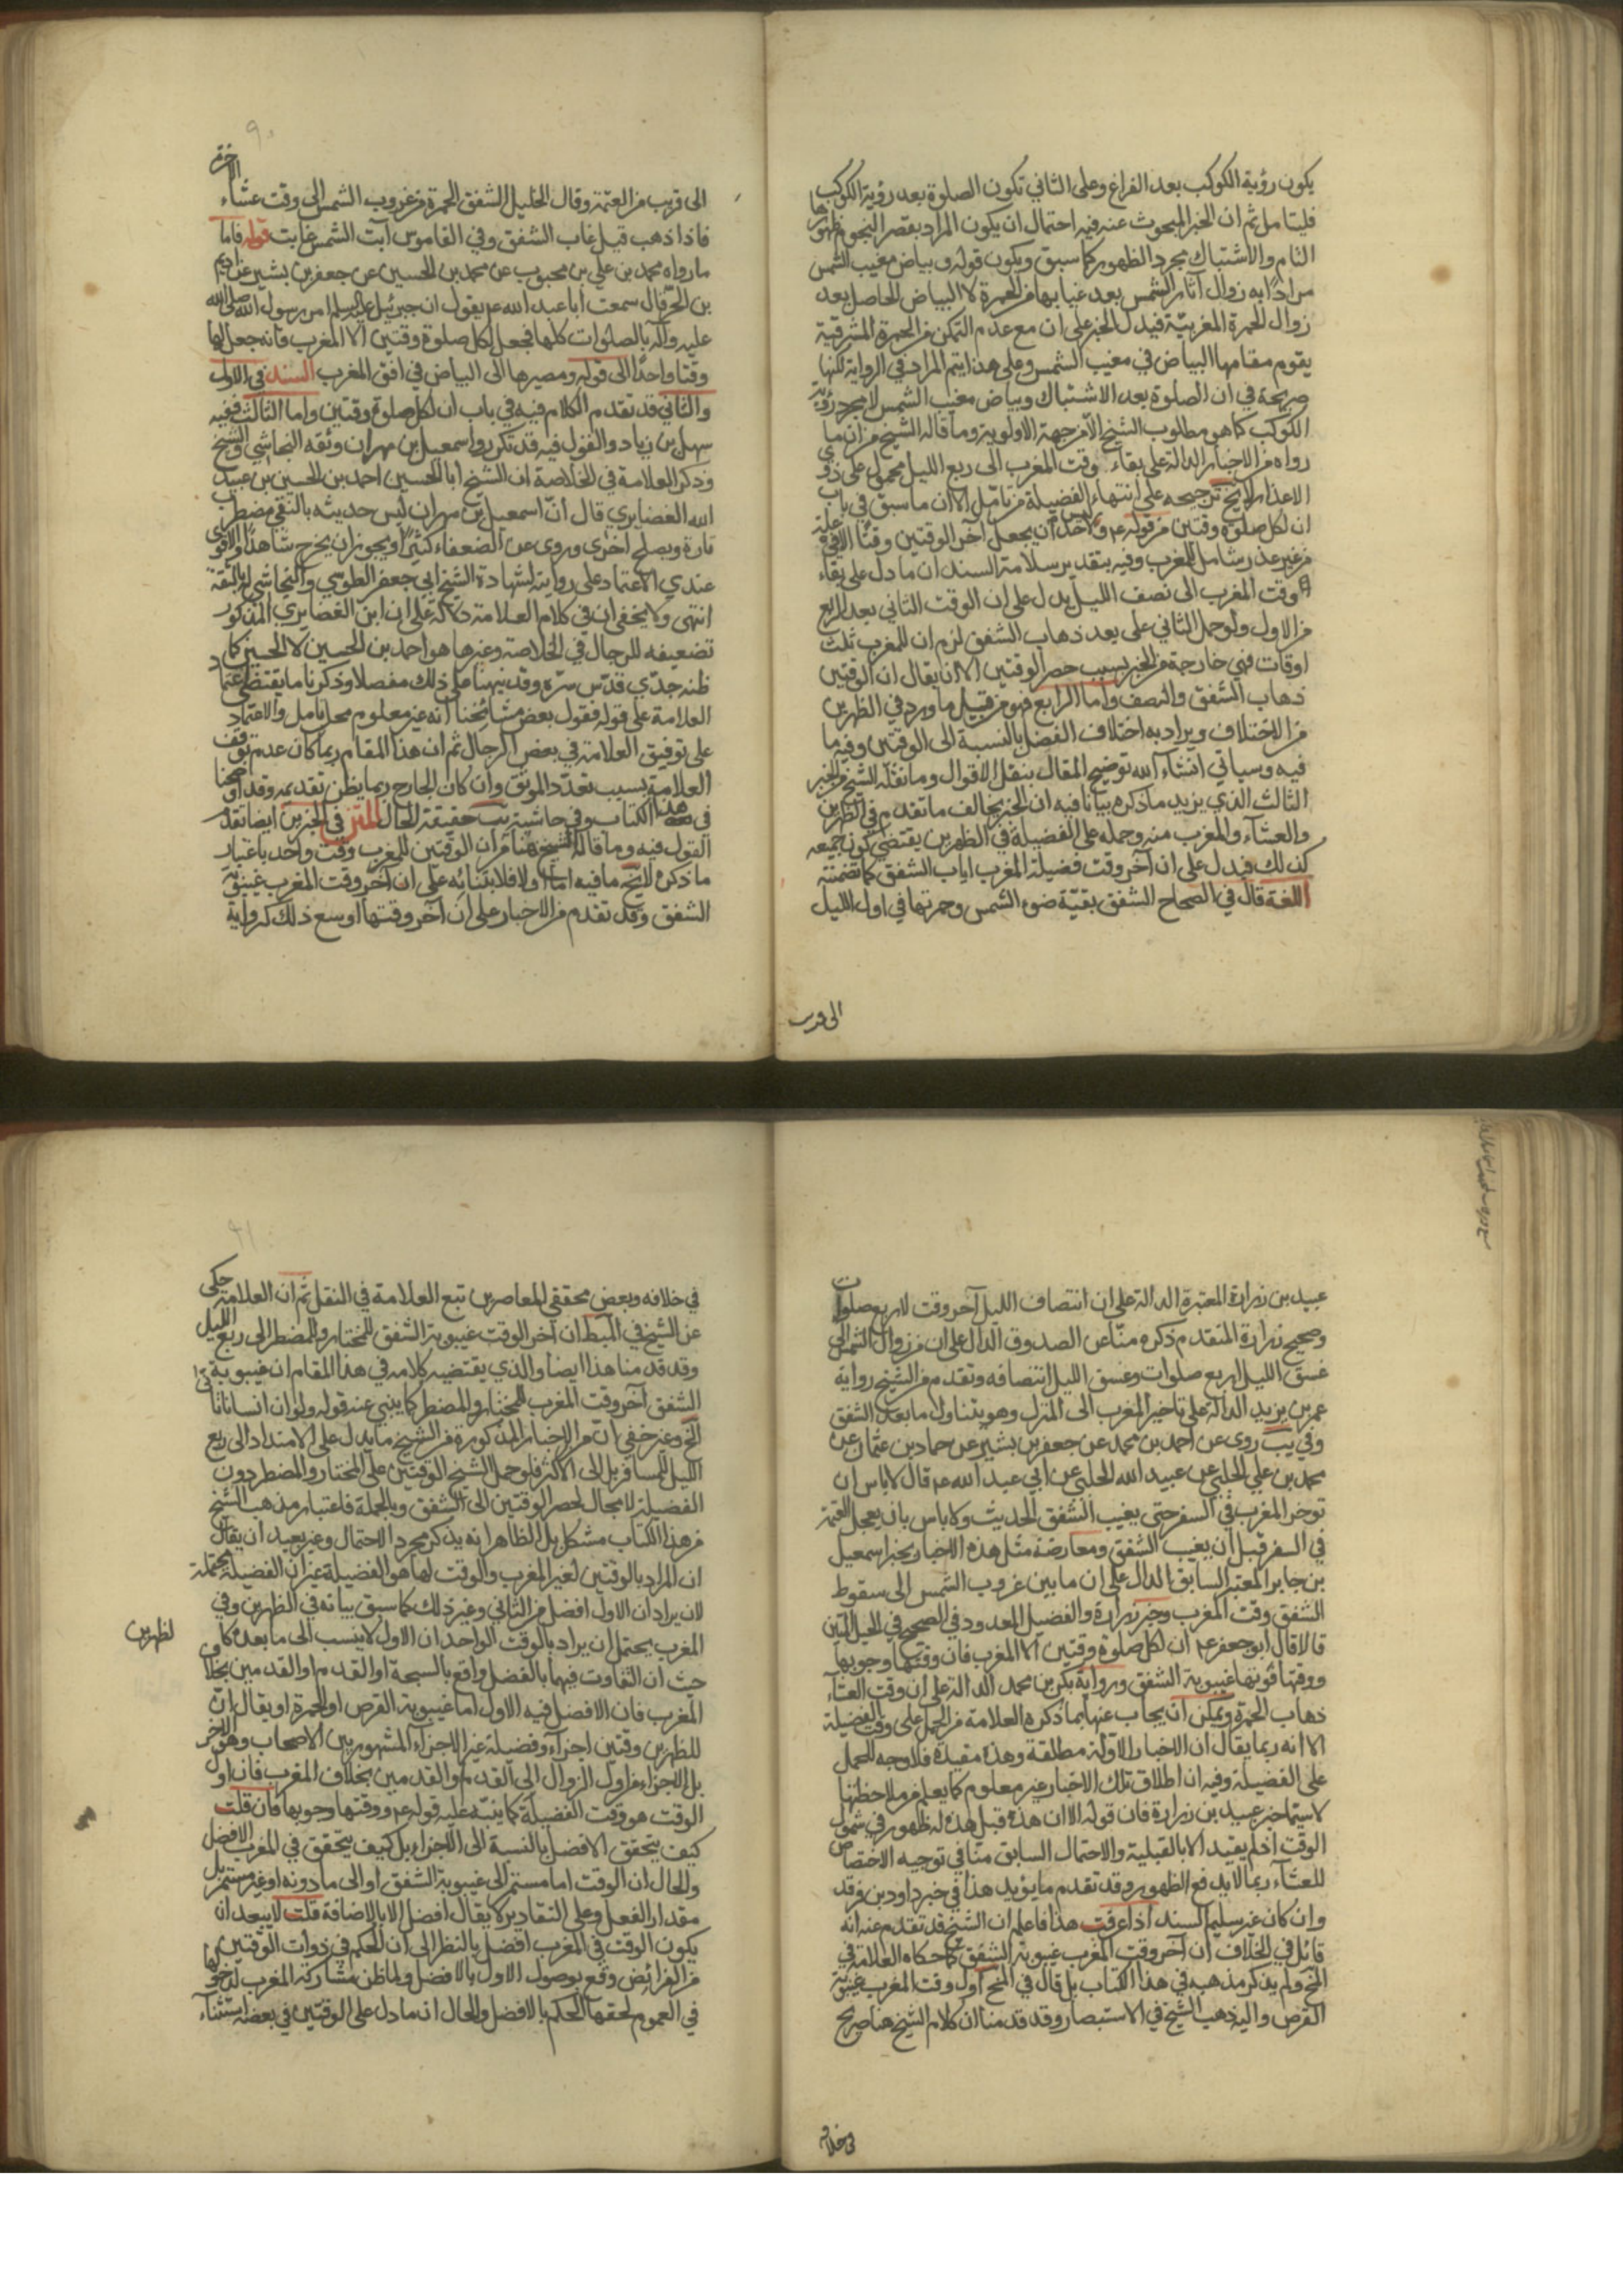 يكون رؤية الكوكب بعد الفراغ وعلى الثاني تكون الصلوة بعد رؤية الكوكب
فليتامل ثم ان الخبر المبحوث عنه فيه احتمال ان يكون المراد بقصر النجوم ظهورها
التام والاشتباك مجرد الظهور كما سبق ويكون قوله وبياض مغيب الشمس
مرادا به زوال آثار الشمس بعد غيابها من الحمرة لا البياض الحاصل بعد
زوال الحمرة المغربية فيدل الخبر على ان مع عدم التمكن من الحمرة المشرقية
يقوم مقامها البياض في مغيب الشمس وعلى هذا يتم المراد في الرواية لكنها
صريحة في ان الصلوة بعد الاشتباك وبياض مغيب الشمس لا مجرد رؤية
الكوكب كما هو مطلوب الشيخ الا من جهة الاولوية وما قاله الشيخ من ان ما
رواه من الاخبار الدالة على بقاء وقت المغرب الى ربع الليل محمول على ذوي
الاعذار لا يخ ترجيحه على انتهاء الفضيلة من تامل الا ان ما سبق في باب
ان لكل صلوة وقتين من قوله عم وليس لاحد ان يجعل آخر الوقتين وقتا الا في علة
من غير عذر شامل للمغرب وفيه بتقدير سلامة السند ان ما دل على بقاء
وقت المغرب الى نصف الليل يدل على ان الوقت الثاني بعد الربع
من الاول ولو حمل الثاني على بعد ذهاب الشفق لزم ان للمغرب ثلث
اوقات فهي خارجة من الخبر بسبب حصر الوقتين الا ان يقال ان الوقتين
ذهاب الشفق والنصف واما الرابع فهو من قبيل ما ورد في الظهرين
من الاختلاف ويراد به اختلاف الفضل بالنسبة الى الوقتين وفيه ما
فيه وسياتي انشاء الله توضيح المقال بنقل الاقوال وما نقله الشيخ من الخبر
الثالث الذي يزيد ما ذكره بيانا فيه ان الخبر يخالف ما تقدم في الظهرين
والعشاء والمغرب منه وحمله على الفضيلة في الظهرين يقتضي كون جميعه
كذلك فيدل على ان آخر وقت فضيلة المغرب اياب الشفق كما تضمنته
اللغة قال في الصحاح الشفق بقية ضوء الشمس وحمرتها في اول الليل
الى قريب
الى قريب من العتمة وقال الخليل الشفق الحمرة من غروب الشمس الى وقت عشاء الاخرة
فاذا ذهب قيل غاب الشفق وفي القاموس آبت الشمس غابت قوله فاما
ما رواه محمد بن علي بن محبوب عن محمد بن الحسين عن جعفر بن بشير عن اديم
بن الحر قال سمعت ابا عبد الله عم يقول ان جبرئيل عليه السلم امر رسول الله صلى الله
عليه وآله بالصلوات كلها فجعل لكل صلوة وقتين الا المغرب فانه جعل لها
وقتا واحدا الى قوله ومصيرها الى البياض في افق المغرب السند في الاول
والثاني قد تقدم الكلام فيه في باب ان لكل صلوة وقتين واما الثالث ففيه
سهل بن زياد والقول فيه قد تكرر واسمعيل بن مهران وثقه النجاشي والشيخ
وذكر العلامة في الخلاصة ان الشيخ ابا الحسين احمد بن الحسين بن عبيد
الله الغضايري قال ان اسمعيل بن مهران ليس حديثه بالنقي مضطرب
تارة ويصلح اخرى وروى عن الضعفاء كثيرا ويجوز ان يخرج شاهدا والاقوى
عندي الاعتماد على روايته لشهادة الشيخ ابي جعفر الطوسي والنجاشي له بالثقة
انتهى ولا يخفى ان في كلام العلامة دلالة على ان ابن الغضايري المذكور
تضعيفه للرجال في الخلاصة وغيرها هو احمد بن الحسين لا الحسين كما
ظنه جدي قدس سره وقد نبهنا على ذلك مفصلا وذكرنا ما يقتضي اعتماد
العلامة على قوله فقول بعض مشائخنا انه غير معلوم محل تامل والاعتماد
على توفيق العلامة في بعض الرجال ثم ان هذا المقام ربما كان عدم توقف
العلامة بسبب تعدد الموثق وان كان الجارح ربما يظن تقديمه وقد اوضحنا
في هذا الكتاب وفي حاشية يب حقيقة الحال المتن في الخبرين ايضا تقدم
القول فيه وما قاله الشيخ هنا من ان الوقتين للمغرب وقت واحد باعتبار
ما ذكره لا يخ ما فيه اما اولا فلابتنائه على ان آخر وقت المغرب غيبوبة
الشفق وقد تقدم من الاخبار على ان آخر وقتها اوسع ذلك كرواية
عبيد بن زرارة المعتبرة الدالة على ان انتصاف الليل آخر وقت لاربع صلوات
وصحيح زرارة المتقدم ذكره منا عن الصدوق الدال على ان من زوال الشمس الى
غسق الليل اربع صلوات وغسق الليل انتصافه وتقدم من الشيخ رواية
عمر بن يزيد الدالة على تاخير المغرب الى المنزل وهو يتناول ما بعد الشفق
وفي يب روى عن احمد بن محمد عن جعفر بن بشير عن حماد بن عثمان عن
محمد بن علي الحلبي عن عبيد الله الحلبي عن ابي عبد الله عم قال لا باس ان
توخر المغرب في السفر حتى يغيب الشفق الحديث ولا باس بان يعجل العتمة
في السفر قبل ان يغيب الشفق ومعارضة مثل هذه الاخبار بخبر اسمعيل
بن جابر المعتبر السابق الدال على ان ما بين غروب الشمس الى سقوط
الشفق وقت المغرب وخبر زرارة والفضيل المعدود في الصحيح في الحبل المتين
قالا قال ابو جعفر عم ان لكل صلوة وقتين الا المغرب فان وقتها وجوبها
ووقتها فوتها غيبوبة الشفق ورواية بكر بن محمد الدالة على ان وقت العشاء
ذهاب الحمرة ويمكن ان يجاب عنها بما ذكره العلامة من الحمل على وقت الفضيلة
الا انه ربما يقال ان الاخبار الاولة مطلقة وهذه مقيدة فلا وجه للحمل
على الفضيلة وفيه ان اطلاق تلك الاخبار غير معلوم كما يعلم من ملاحظتها
لا سيما خبر عبيد بن زرارة فان قوله الا ان هذه قبل هذه له ظهور في شمول
الوقت اذ لم يقيد الا بالقبلية والاحتمال السابق منا في توجيه الاختصاص
للعشاء ربما لا يدفع الظهور وقد تقدم ما يؤيد هذا في خبر داود بن فرقد
وان كان غير سليم السند اذا عرفت هذا فاعلم ان الشيخ قد تقدم عنه انه
قائل في الخلاف ان آخر وقت المغرب غيبوبة الشفق كما حكاه العلامة في
المخ ولم يذكر مذهبه في هذا الكتاب بل قال في المخ اول وقت المغرب غيبوبة
القرص واليه ذهب الشيخ في الاستبصار وقد قدمنا ان كلام الشيخ هنا صريح
في خلافه
في خلافه وبعض محققي المعاصرين تبع العلامة في النقل ثم ان العلامة حكى
عن الشيخ في المبسط ان آخر الوقت غيبوبة الشفق للمختار وللمضطر الى ربع الليل
وقد قدمنا هذا ايضا والذي يقتضيه كلامه في هذا المقام ان غيبوبة
الشفق آخر وقت المغرب للمختار والمضطر كما ينبي عنه قوله ولو ان انسانا تانى
الخ وغير خفي ان من الاخبار المذكورة من الشيخ ما يدل على الامتداد الى ربع
الليل للمسافر بل الى الاكثر فلو حمل الشيخ الوقتين على المختار والمضطر دون
الفضيلة لا مجال لحصر الوقتين الى الشفق وبالجملة فاعتبار مذهب الشيخ
من هذا الكتاب مشكل بل الظاهر انه يذكر مجرد الاحتمال وغير بعيد ان يقال
ان المراد بالوقتين لغير المغرب والوقت لها هو الفضيلة غير ان الفضيلة محتملة
لان يراد ان الاول افضل من الثاني وغير ذلك كما سبق بيانه في الظهرين وفي
المغرب يحتمل ان يراد بالوقت الواحد ان الاول لا ينسب الى ما بعده كما في
لظهرين
حيث ان التفاوت فيهما بالفضل واقع بالسبحة او القدم او القدمين بخلاف
المغرب فان الافضل فيه الاول اما غيبوبة القرص او الحمرة او يقال ان
للظهرين وقتين اجزاء وفضيلة غير الاجزاء المشهور بين الاصحاب وهو الاخر
بل الاجزاء من اول الزوال الى القدم او القدمين بخلاف المغرب فان اول
الوقت هو وقت الفضيلة كما ينبه عليه قوله عم ووقتها وجوبها فان قلت
كيف يتحقق الافضل بالنسبة الى الاجزاء بل كيف يتحقق في المغرب الافضل
والحال ان الوقت اما مستمر الى غيبوبة الشفق او الى ما دونه او غير مستمر بل
مقدار الفعل وعلى التقادير لا يقال افضل الا بالاضافة قلت لا يبعد ان
يكون الوقت في المغرب افضل بالنظر الى ان الحكم في ذوات الوقتين
من الفرائض وقع بوصول الاول بالافضل فلما ظن مشاركة المغرب لدخولها
في العموم لحقها الحكم بالافضل والحال ان ما دل على الوقتين في بعضه استثناء